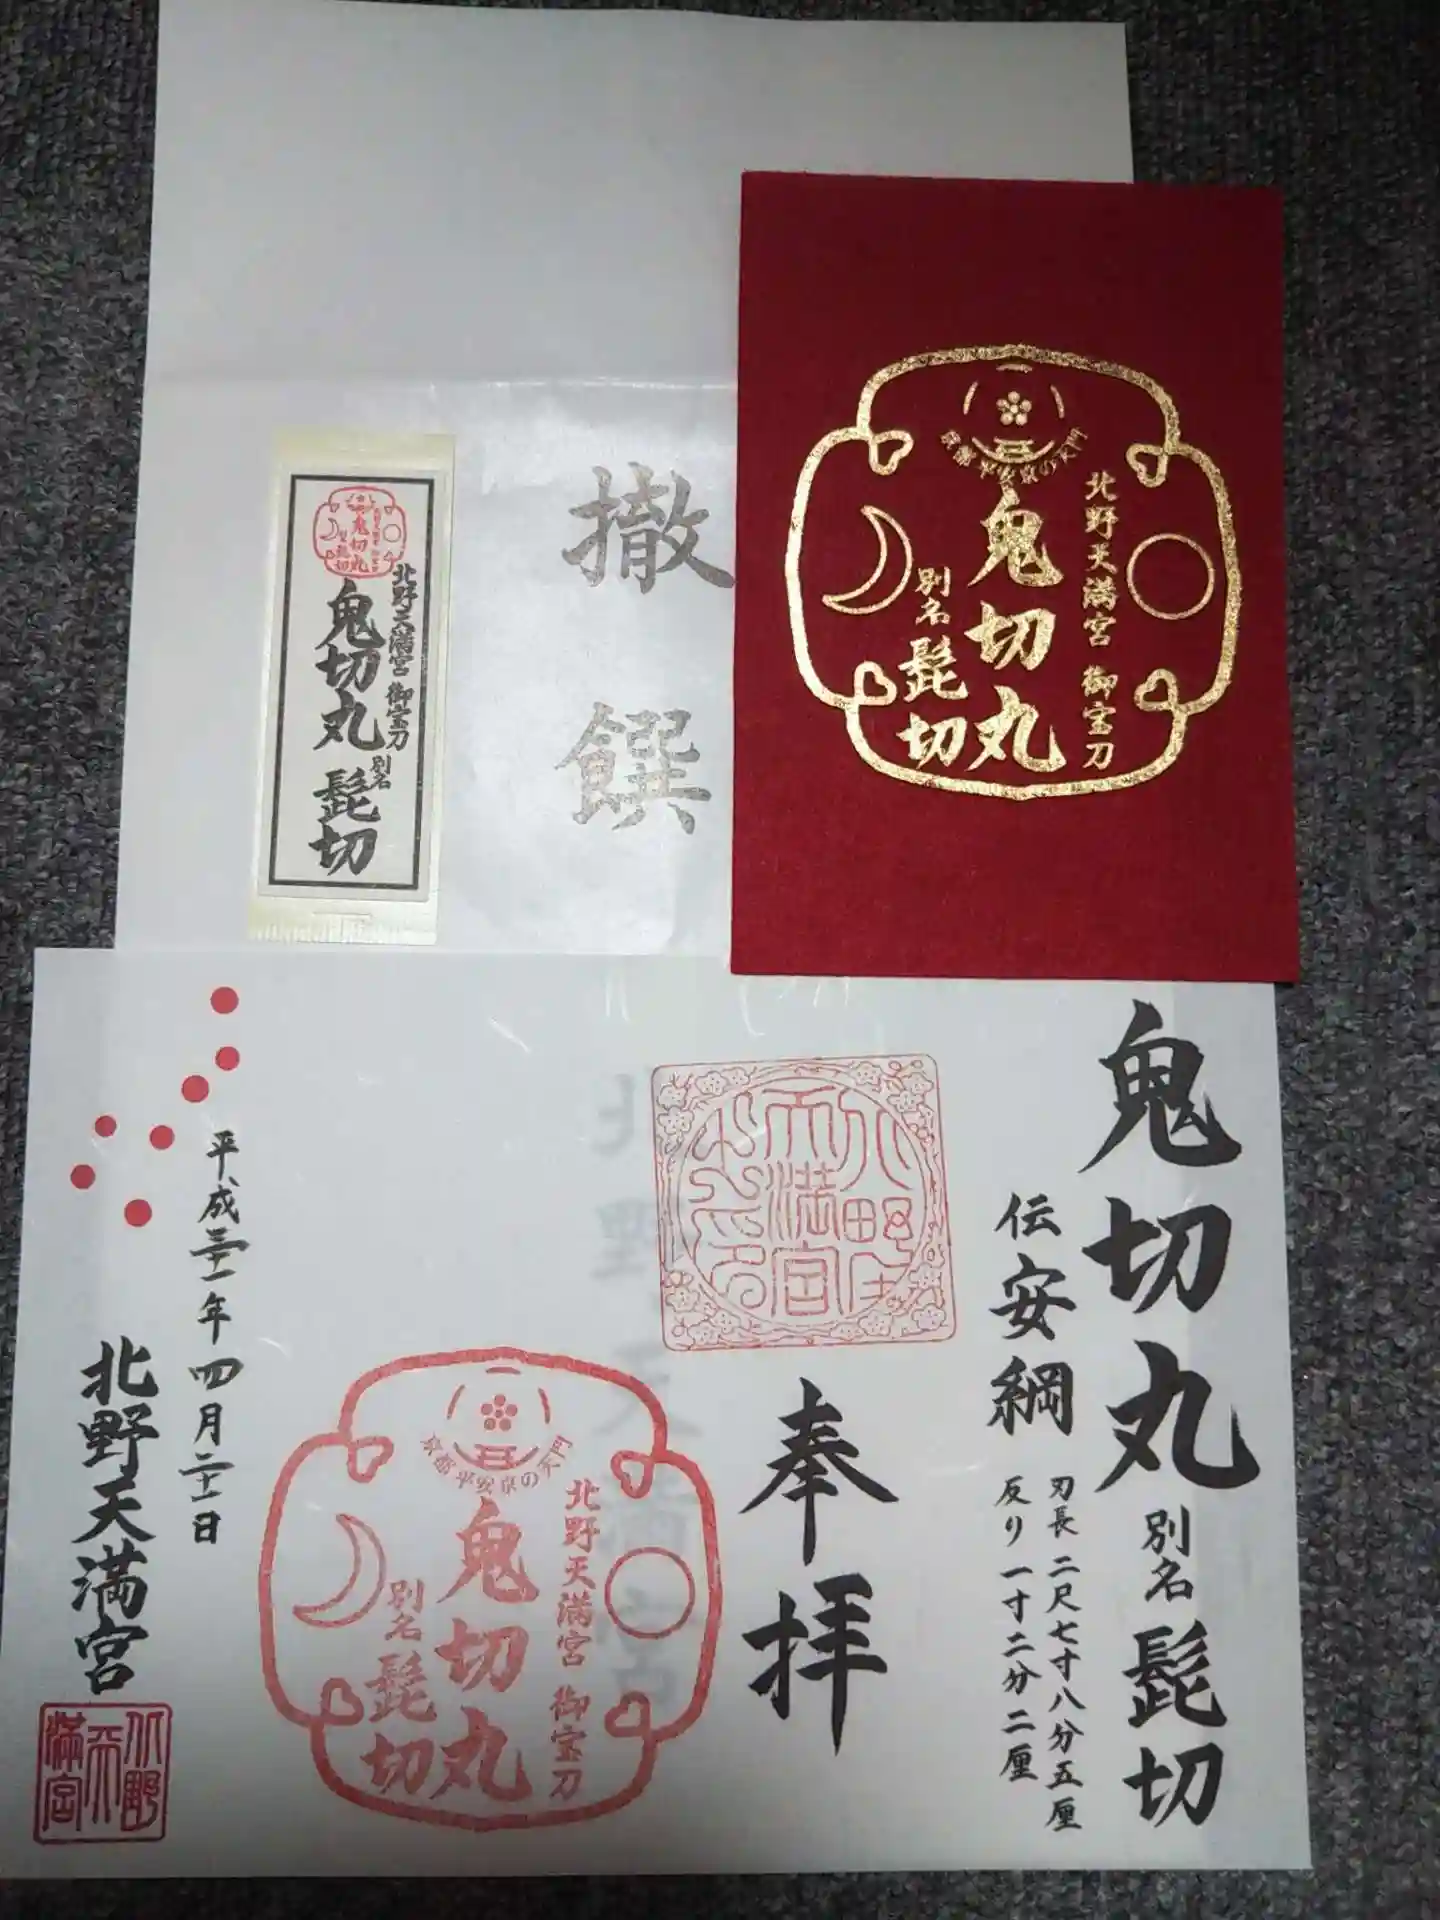 撤饌
北野天満宮 御宝刀
鬼切丸 別名 髭切
京都平安京の天門
北野天満宮 御宝刀
鬼切丸
別名 髭切
北野天満宮 御宝刀
鬼切丸
別名 髭切
鬼切丸 別名 髭切
伝安綱
刃長 二尺七寸八分五厘
反り 一寸二分二厘
奉拝
北野
天満宮
之印
京都平安京の天門
北野天満宮 御宝刀
鬼切丸
別名 髭切
平成三十一年四月二十一日
北野天満宮
北野
天
満宮